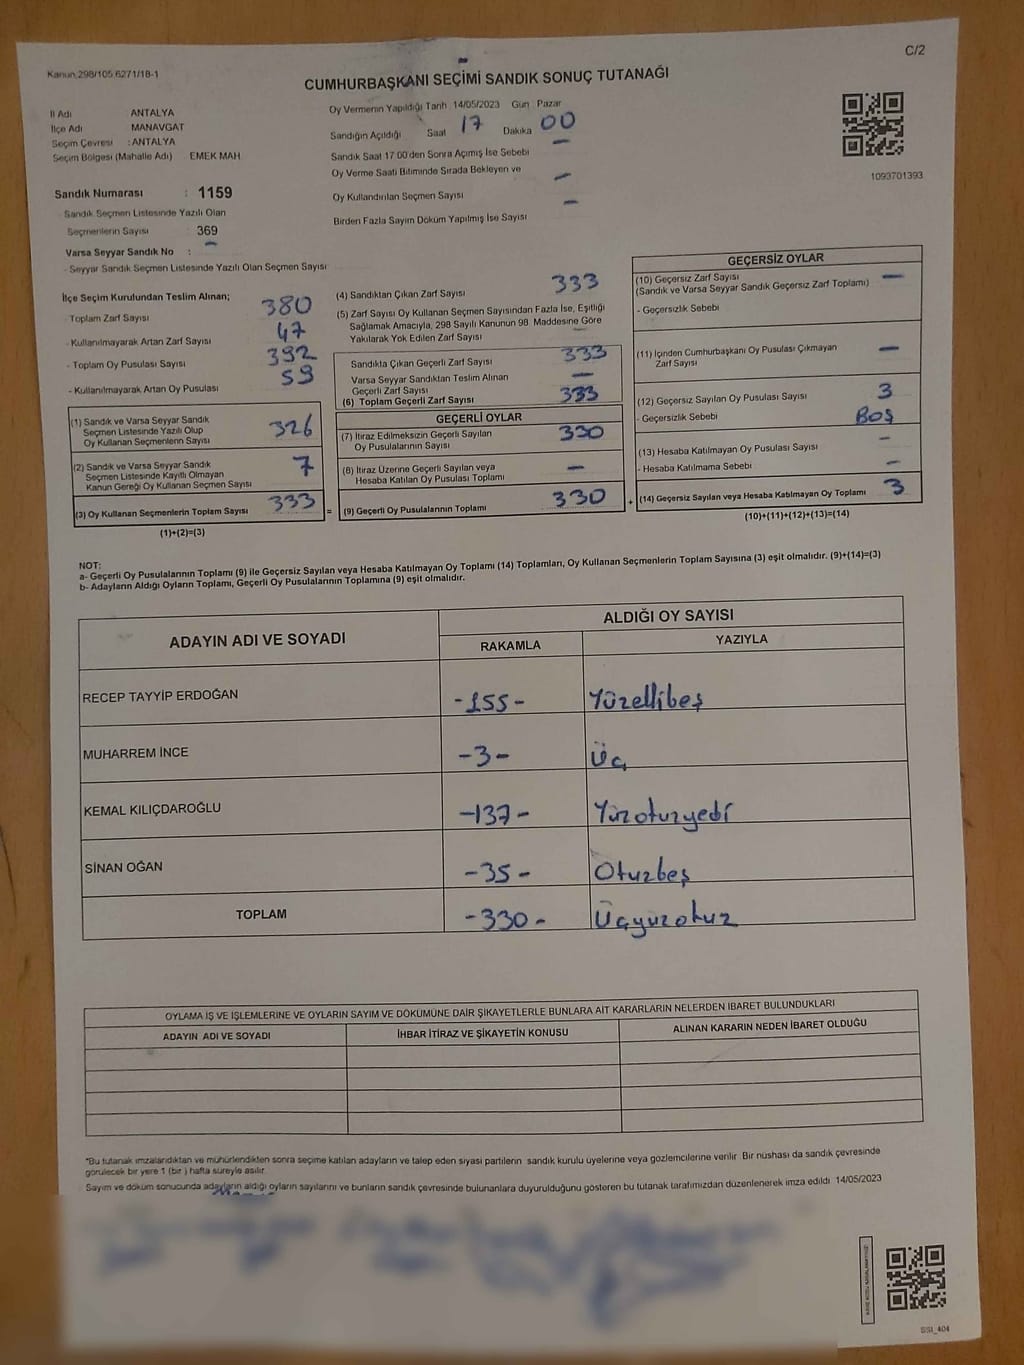 Kanun 298/105 6271/18-1
C/2
CUMHURBAŞKANI SEÇİMİ SANDIK SONUÇ TUTANAĞI
İl Adı ANTALYA
İlçe Adı MANAVGAT
Seçim Çevresi : ANTALYA
Seçim Bölgesi (Mahalle Adı) EMEK MAH
Sandık Numarası : 1159
- Sandık Seçmen Listesinde Yazılı Olan
Seçmenlerin Sayısı : 369
Varsa Seyyar Sandık No : -
- Seyyar Sandık Seçmen Listesinde Yazılı Olan Seçmen Sayısı
Oy Vermenin Yapıldığı Tarih 14/05/2023 Gün Pazar
Sandığın Açıldığı Saat 17 Dakika 00
Sandık Saat 17 00'den Sonra Açımış İse Sebebi -
Oy Verme Saati Bitiminde Sırada Bekleyen ve
Oy Kullandırılan Seçmen Sayısı -
Birden Fazla Sayım Döküm Yapılmış İse Sayısı -
1093701393
İlçe Seçim Kurulundan Teslim Alınan;
- Toplam Zarf Sayısı 380
- Kullanılmayarak Artan Zarf Sayısı 47
- Toplam Oy Pusulası Sayısı 392
- Kullanılmayarak Artan Oy Pusulası 59
(1) Sandık ve Varsa Seyyar Sandık
Seçmen Listesinde Yazılı Olup
Oy Kullanan Seçmenlerin Sayısı 326
(2) Sandık ve Varsa Seyyar Sandık
Seçmen Listesinde Kayıtlı Olmayan
Kanun Gereği Oy Kullanan Seçmen Sayısı 7
(3) Oy Kullanan Seçmenlerin Toplam Sayısı 333 =
(1)+(2)=(3)
(4) Sandıktan Çıkan Zarf Sayısı 333
(5) Zarf Sayısı Oy Kullanan Seçmen Sayısından Fazla İse, Eşitliği
Sağlamak Amacıyla, 298 Sayılı Kanunun 98 Maddesine Göre
Yakılarak Yok Edilen Zarf Sayısı
Sandıkta Çıkan Geçerli Zarf Sayısı 333
Varsa Seyyar Sandıktan Teslim Alınan
Geçerli Zarf Sayısı -
(6) Toplam Geçerli Zarf Sayısı 333
GEÇERLİ OYLAR
(7) İtiraz Edilmeksizin Geçerli Sayılan
Oy Pusulalarının Sayısı 330
(8) İtiraz Üzerine Geçerli Sayılan veya
Hesaba Katılan Oy Pusulası Toplamı -
(9) Geçerli Oy Pusulalarının Toplamı 330 +
GEÇERSİZ OYLAR
(10) Geçersiz Zarf Sayısı -
(Sandık ve Varsa Seyyar Sandık Geçersiz Zarf Toplamı)
- Geçersizlik Sebebi
(11) İçinden Cumhurbaşkanı Oy Pusulası Çıkmayan
Zarf Sayısı -
(12) Geçersiz Sayılan Oy Pusulası Sayısı 3
- Geçersizlik Sebebi BOŞ
(13) Hesaba Katılmayan Oy Pusulası Sayısı -
- Hesaba Katılmama Sebebi -
(14) Geçersiz Sayılan veya Hesaba Katılmayan Oy Toplamı 3
(10)+(11)+(12)+(13)=(14)
NOT:
a- Geçerli Oy Pusulalarının Toplamı (9) ile Geçersiz Sayılan veya Hesaba Katılmayan Oy Toplamı (14) Toplamları, Oy Kullanan Seçmenlerin Toplam Sayısına (3) eşit olmalıdır. (9)+(14)=(3)
b- Adayların Aldığı Oyların Toplamı, Geçerli Oy Pusulalarının Toplamına (9) eşit olmalıdır.
ADAYIN ADI VE SOYADI
ALDIĞI OY SAYISI
RAKAMLA YAZIYLA
RECEP TAYYİP ERDOĞAN -155- Yüzellibeş
MUHARREM İNCE -3- Üç
KEMAL KILIÇDAROĞLU -137- Yüzotuzyedi
SİNAN OĞAN -35- Otuzbeş
TOPLAM -330- Üçyüzotuz
OYLAMA İŞ VE İŞLEMLERİNE VE OYLARIN SAYIM VE DÖKÜMÜNE DAİR ŞİKAYETLERLE BUNLARA AİT KARARLARIN NELERDEN İBARET BULUNDUKLARI
ADAYIN ADI VE SOYADI İHBAR İTİRAZ VE ŞİKAYETİN KONUSU ALINAN KARARIN NEDEN İBARET OLDUĞU
*Bu tutanak imzalandıktan ve mühürlendikten sonra seçime katılan adayların ve talep eden siyasi partilerin sandık kurulu üyelerine veya gözlemcilerine verilir Bir nüshası da sandık çevresinde
görülecek bir yere 1 (bir ) hafta süreyle asılır
Sayım ve döküm sonucunda adayların aldığı oyların sayılarını ve bunların sandık çevresinde bulunanlara duyurulduğunu gösteren bu tutanak tarafımızdan düzenlenerek imza edildi 14/05/2023
SSI_404